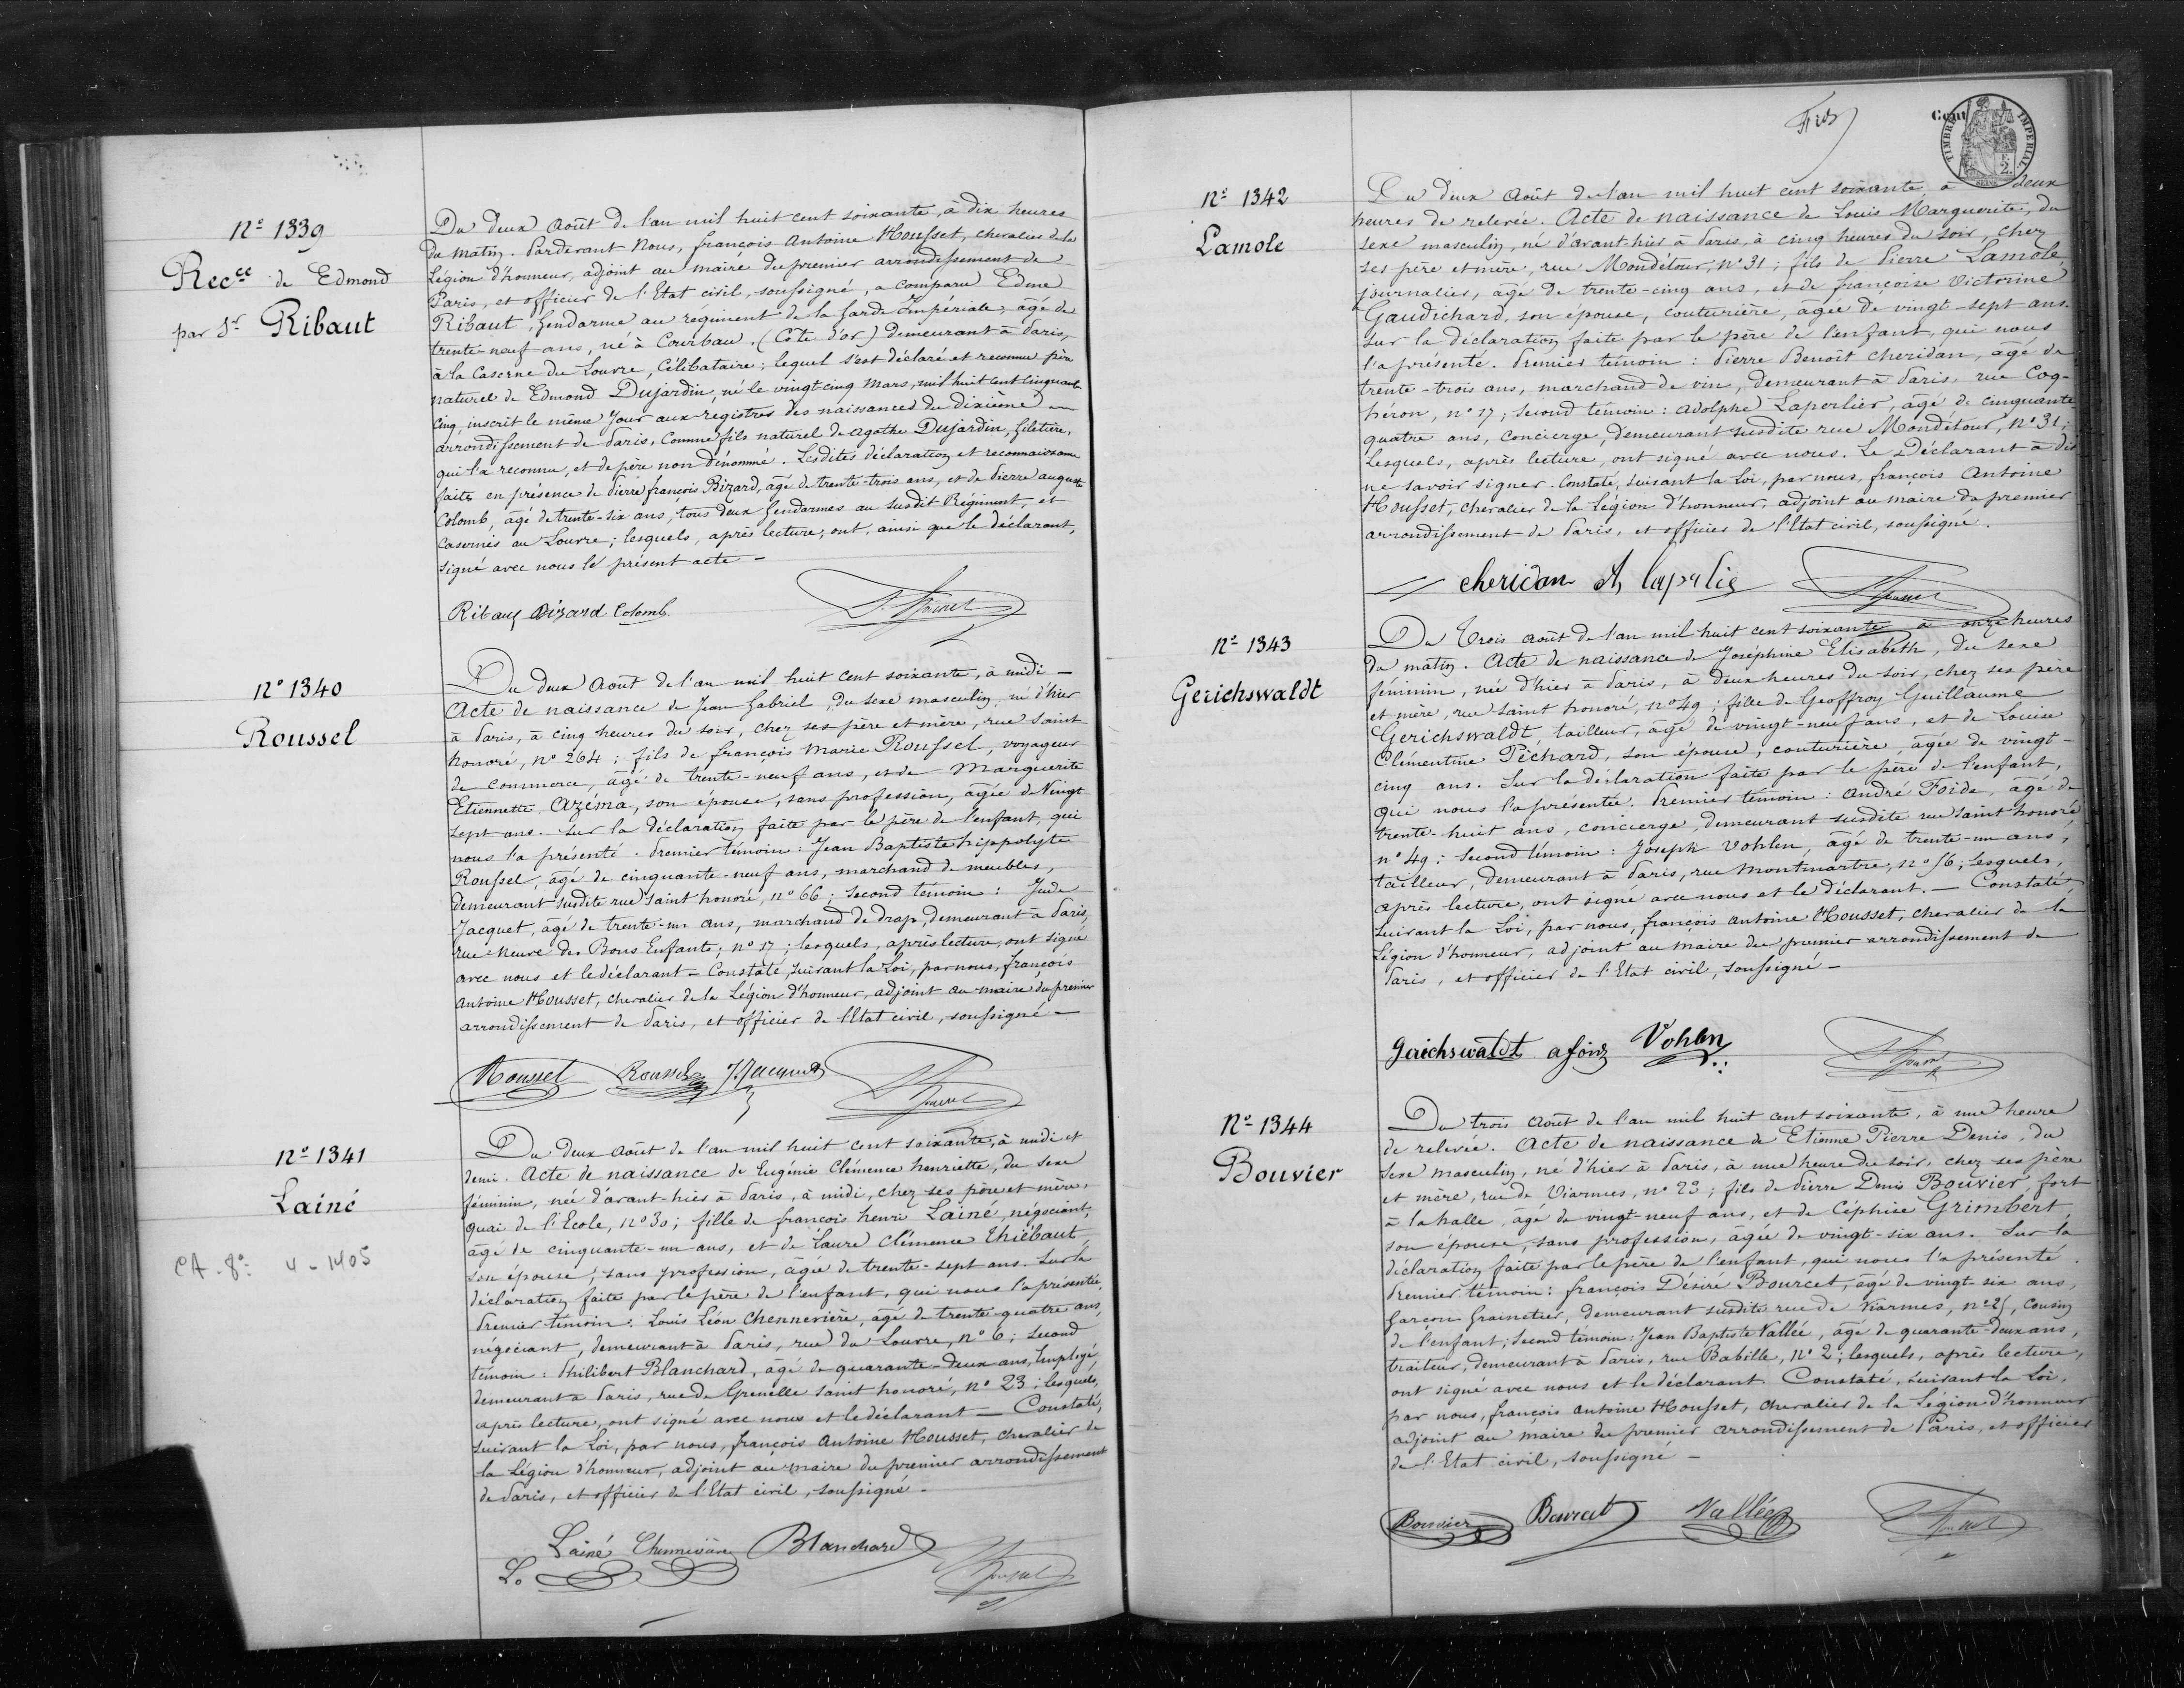 N° 1339
Rec.ce de Edmond
par Sr Ribaut
Du deux Août de l'an mil huit cent soixante, à dix heures
du matin. Pardevant Nous, françois Antoine Housset, chevalier de la
Légion d'honneur, adjoint au maire du premier arrondissement de
Paris, et officier de l'Etat civil, soussigné, a comparu Edme
Ribaut, Gendarme au regiment de la Garde Impériale, âgé de
trente-neuf ans, né à Courbau, (Côte d'or) demeurant à Paris,
à la Caserne du Louvre, Célibataire; lequel s'est déclaré et reconnu père
naturel de Edmond Dujardin, né le vingt cinq Mars, mil huit cent cinquante
cinq, inscrit le même Jour aux registres des naissances du dixième
arrondissement de Paris, Comme fils naturel de Agathe Dujardin, Giletière,
qui l'a reconnu, et de père non dénommé. Lesdites déclaration et reconnaissance
faites en présence de Pierre françois Bizard, âgé de trente-trois ans, et de Pierre auguste
Colomb, âgé de trente-six ans, tous deux Gendarmes au susdit Régiment, et
Casernés au Louvre; lesquels, après lecture, ont, ainsi que le déclarant,
signé avec nous le présent acte —
Ribaut Bizard Colomb
N° 1340
Roussel
Du deux Août de l'an mil huit cent soixante, à midi —
Acte de naissance de Jean Gabriel, du sexe masculin, né d'hier
à Paris, à cinq heures du soir, chez ses père et mère, rue Saint
honoré, n° 264; fils de françois Marie Roussel, voyageur
de commerce, âgé de trente-neuf ans, et de Marguerite
Etiennette Azéma, son épouse, sans profession, âgée de Vingt
sept ans. Sur la déclaration faite par le père de l'enfant, qui
nous l'a présenté. Premier témoin: Jean Baptiste hippolyte
Roussel, âgé de cinquante-neuf ans, marchand de meubles,
demeurant susdite rue Saint honoré, n° 66; Second témoin: Jude
Jacquet, âgé de trente-un ans, marchand de drap, demeurant à Paris,
rue Neuve des Bons Enfants, n° 17; lesquels, après lecture, ont signé
avec nous et le déclarant — Constaté, suivant la Loi, par nous, françois
Antoine Housset, chevalier de la Légion d'honneur, adjoint au maire du premier
arrondissement de Paris, et officier de l'Etat civil, soussigné —
Roussel Roussel J. Jacquet
N° 1341
Lainé
Du deux août de l'an mil huit cent soixante, à midi et
demi. Acte de naissance de Eugénie Clémence henriette, du sexe
féminin, née d'avant-hier à Paris, à midi, chez ses père et mère,
quai de l'Ecole, n° 30; fille de françois henri Lainé, négociant,
âgé de cinquante-un ans, et de Laure Clémence Thiébaut,
son épouse, sans profession, âgée de trente-sept ans. Sur la
déclaration faite par le père de l'enfant, qui nous l'a présentée.
Premier témoin: Louis Léon Chennevière, âgé de trente-quatre ans,
négociant, demeurant à Paris, rue du Louvre, n° 6; second
témoin: Philibert Blanchard, âgé de quarante-deux ans, Employé,
demeurant à Paris, rue de Grenelle saint honoré, n° 23; lesquels,
après lecture, ont signé avec nous et le déclarant — Constaté,
suivant la Loi, par nous, françois Antoine Housset, chevalier de
la Légion d'honneur, adjoint au maire du premier arrondissement
de Paris, et officier de l'Etat civil, soussigné.
Lainé Chennevière Blanchard
CA - 8° 4 - 1405
TIMBRE IMPERIAL
N° 1342
Lamole
Du deux Août de l'an mil huit cent soixante, à deux
heures de relevée. Acte de naissance de Louis Marguerite, du
sexe masculin, né d'avant hier à Paris, à cinq heures du soir, chez
ses père et mère, rue Mondétour, n° 31; fils de Pierre Lamole,
journalier, âgé de trente-cinq ans, et de françoise Victorine
Gaudichard, son épouse, couturière, âgée de vingt-sept ans.
Sur la déclaration faite par le père de l'enfant, qui nous
l'a présenté. Premier témoin: Pierre Benoît cheridan, âgé de
trente-trois ans, marchand de vin, demeurant à Paris, rue Coq-
héron, n° 17; second témoin: Adolphe Laperlier, âgé de cinquante-
quatre ans, concierge, demeurant susdite rue Mondétour, N° 31;
Lesquels, après lecture, ont signé avec nous. Le Déclarant a dit
ne savoir signer. Constaté, suivant la Loi, par nous, françois Antoine
Housset, chevalier de la Légion d'honneur, adjoint au maire du premier
arrondissement de Paris, et officier de l'Etat civil, soussigné.
cheridan
N° 1343
Gerichswaldt
Du Trois août de l'an mil huit cent soixante à onze heures
du matin. Acte de naissance de Joséphine Elisabeth, du sexe
féminin, née d'hier à Paris, à deux heures du soir, chez ses père
et mère, rue Saint honoré, n° 49; fille de Geoffroy Guillaume
Gerichswaldt, tailleur, âgé de vingt-neuf ans, et de Louise
Clémentine Piéchard, son épouse, couturière, âgée de vingt-
cinq ans. Sur la déclaration faite par le père de l'enfant,
qui nous l'a présentée. Premier témoin: André Foide, âgé de
trente-huit ans, concierge, demeurant susdite rue Saint honoré,
n° 49; Second témoin: Joseph Vohlen, âgé de trente-un ans,
tailleur, demeurant à Paris, rue Montmartre, n° 56; Lesquels,
après lecture, ont signé avec nous et le déclarant. — Constaté,
suivant la Loi, par nous, françois Antoine Housset, chevalier de la
Légion d'honneur, adjoint au maire du premier arrondissement de
Paris, et officier de l'Etat civil, soussigné —
Gerichswaldt Vohlen
N° 1344
Bouvier
Du trois août de l'an mil huit cent soixante, à une heure
de relevée. Acte de naissance de Etienne Pierre Denis, du
Sexe masculin, né d'hier à Paris, à une heure du soir, chez ses père
et mère, rue de Viarmes, n° 23; fils de Pierre Denis Bouvier, fort
à la halle, âgé de vingt-neuf ans, et de Céphise Grimbert,
son épouse, sans profession, âgée de vingt-six ans. Sur la
déclaration faite par le père de l'enfant, qui nous l'a présenté.
Premier témoin: françois Désiré Bourcet, âgé de vingt six ans,
garçon Grainetier, demeurant susdite rue de Viarmes, n° 25, cousin
de l'enfant; Second témoin: Jean Baptiste Vallée, âgé de quarante-deux ans,
traiteur, demeurant à Paris, rue Babille, N° 2; lesquels, après lecture,
ont signé avec nous et le déclarant. Constaté, suivant la Loi,
par nous, françois Antoine Housset, chevalier de la Légion d'honneur
adjoint au maire du premier arrondissement de Paris, et officier
de l'Etat civil, soussigné —
Bouvier Bourcet Vallée